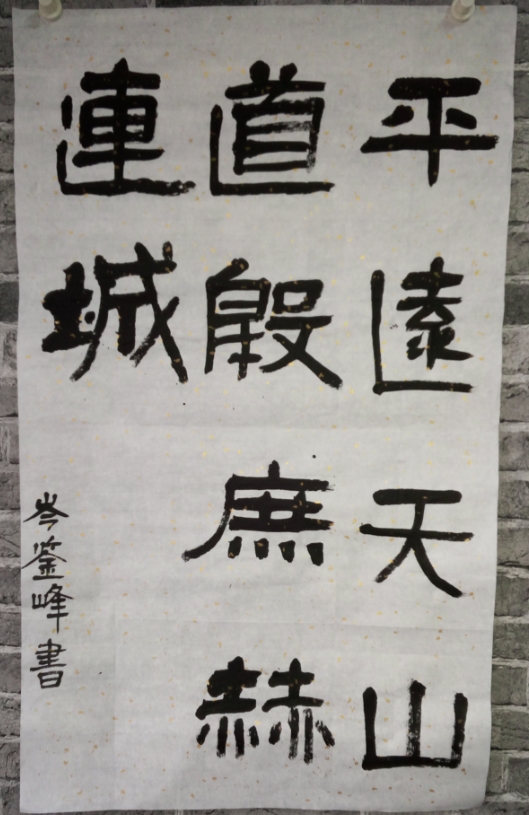 平遠天山
道殷庶赫
連城
岑鋆峰書